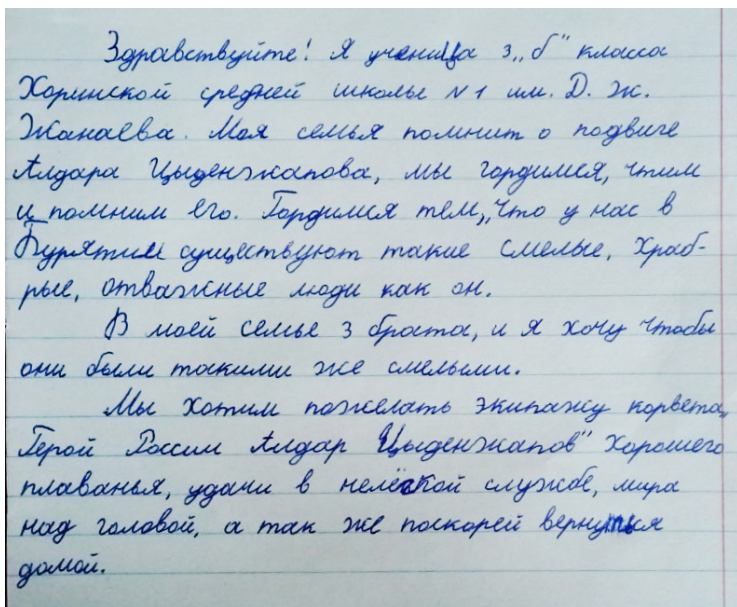 Здравствуйте! Я ученица 3„б" класса
Хоринской средней школы №1 им. Д. Ж.
Жанаева. Моя семья помнит о подвиге
Алдара Цыденжапова, мы гордимся, чтим
и помним его. Гордимся тем, что у нас в
Бурятии существуют такие смелые, храб-
рые, отважные люди как он.
В моей семье 3 брата, и я хочу чтобы
они были такими же смелыми.
Мы хотим пожелать экипажу корвета„
Герой России Алдар Цыденжапов" хорошего
плаванья, удачи в нелёгкой службе, мира
над головой, а так же поскорей вернуться
домой.